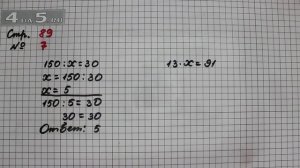 4 на 5 .ru
Стр. 89
№ 7
150 : x = 30
x = 150 : 30
x = 5
150 : 5 = 30
30 = 30
Ответ: 5
13 · x = 91